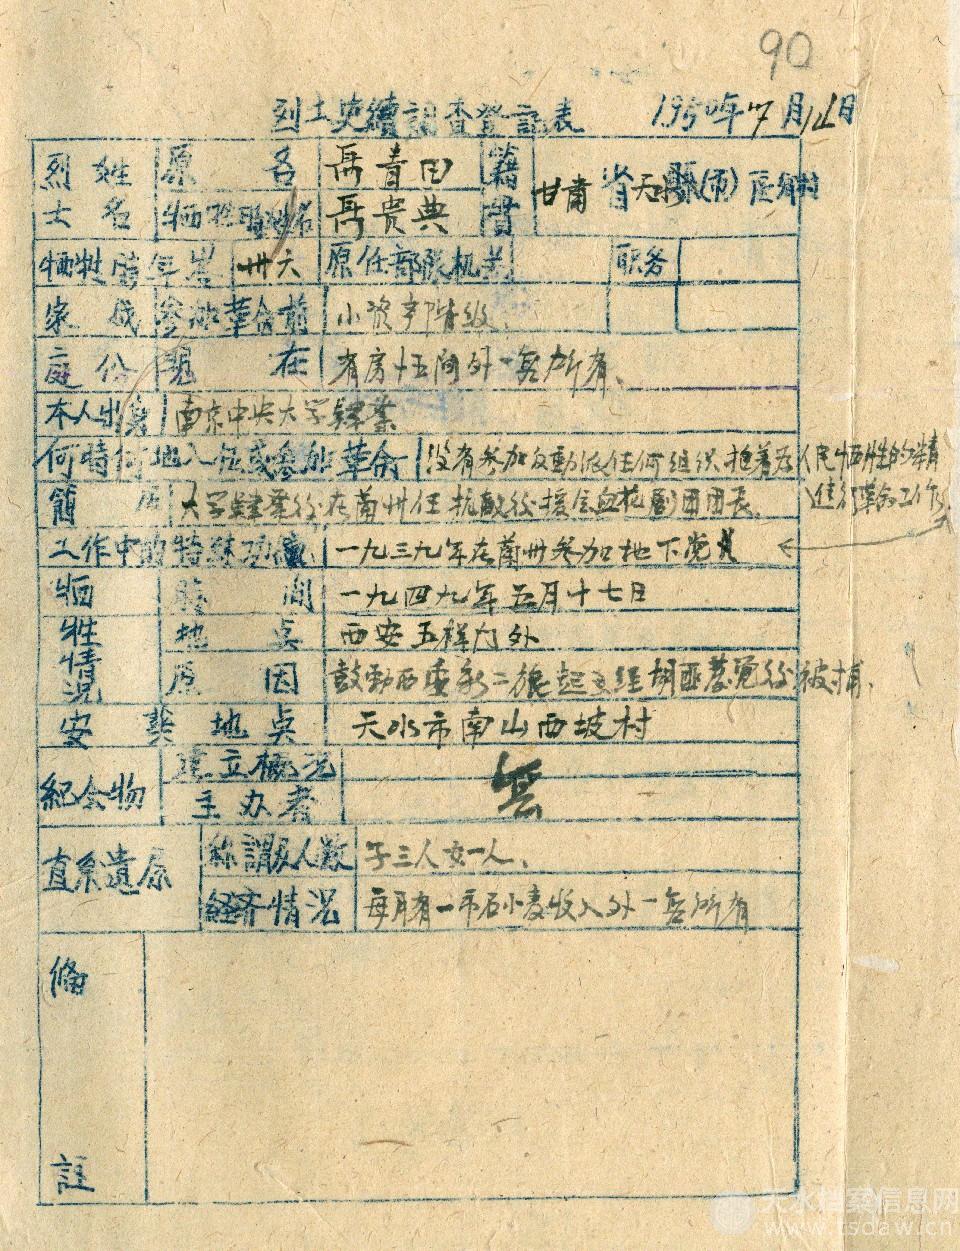 90
烈士史績調查登記表 1950年7月14日
烈士姓名 原名 禼青田 籍貫 甘肃省天水縣(市) 區 鄉 村
牺牲時姓名 禼貴典
牺牲時年岁 卅六 原任部隊机关 职务
家庭成份 参加革命前 小资产階級、
現在 有房十五间外一無所有、
本人出身 南京中央大学肄業
何時何地入伍或参加革命 没有参加反動派任何组织 抱着为人民牺牲的熱情
進行革命工作
簡历 大学肄業後在蘭州任抗敵後援会血花劇团团长、
工作中的特殊功績 一九三九年在蘭州参加地下党
牺牲情况 時間 一九四九年五月十七日
地点 西安玉祥门外
原因 鼓動西 起义经胡匪 覚後被捕、
安葬地点 天水市南山西坡村
紀念物 建立概况 無
主办者
直系遺属 称謂及人数 子三人女一人、
经济情况 每月有一市石小麦收入外一無所有
備註
天水档案信息网
www.tsdaw.cn